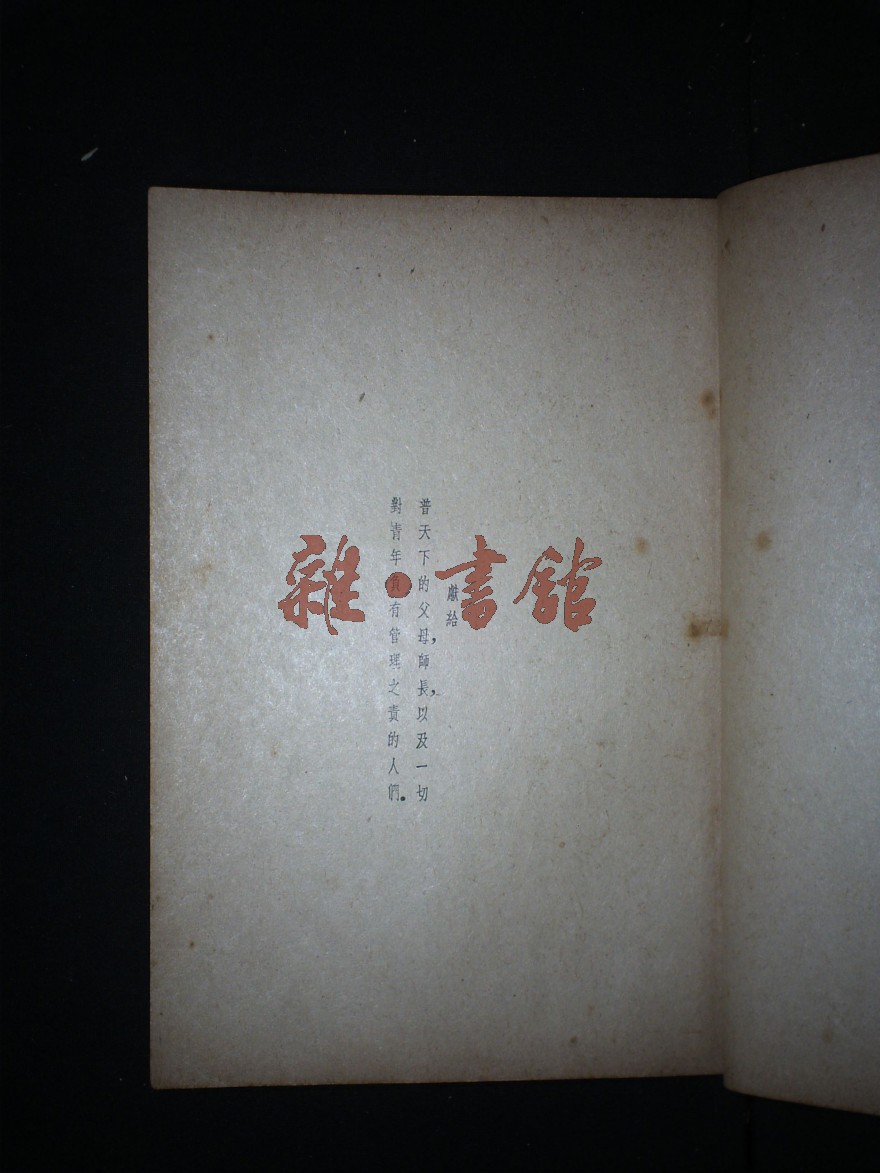 獻給
普天下的父母，師長，以及一切
對青年負有管理之責的人們。
雜·書館